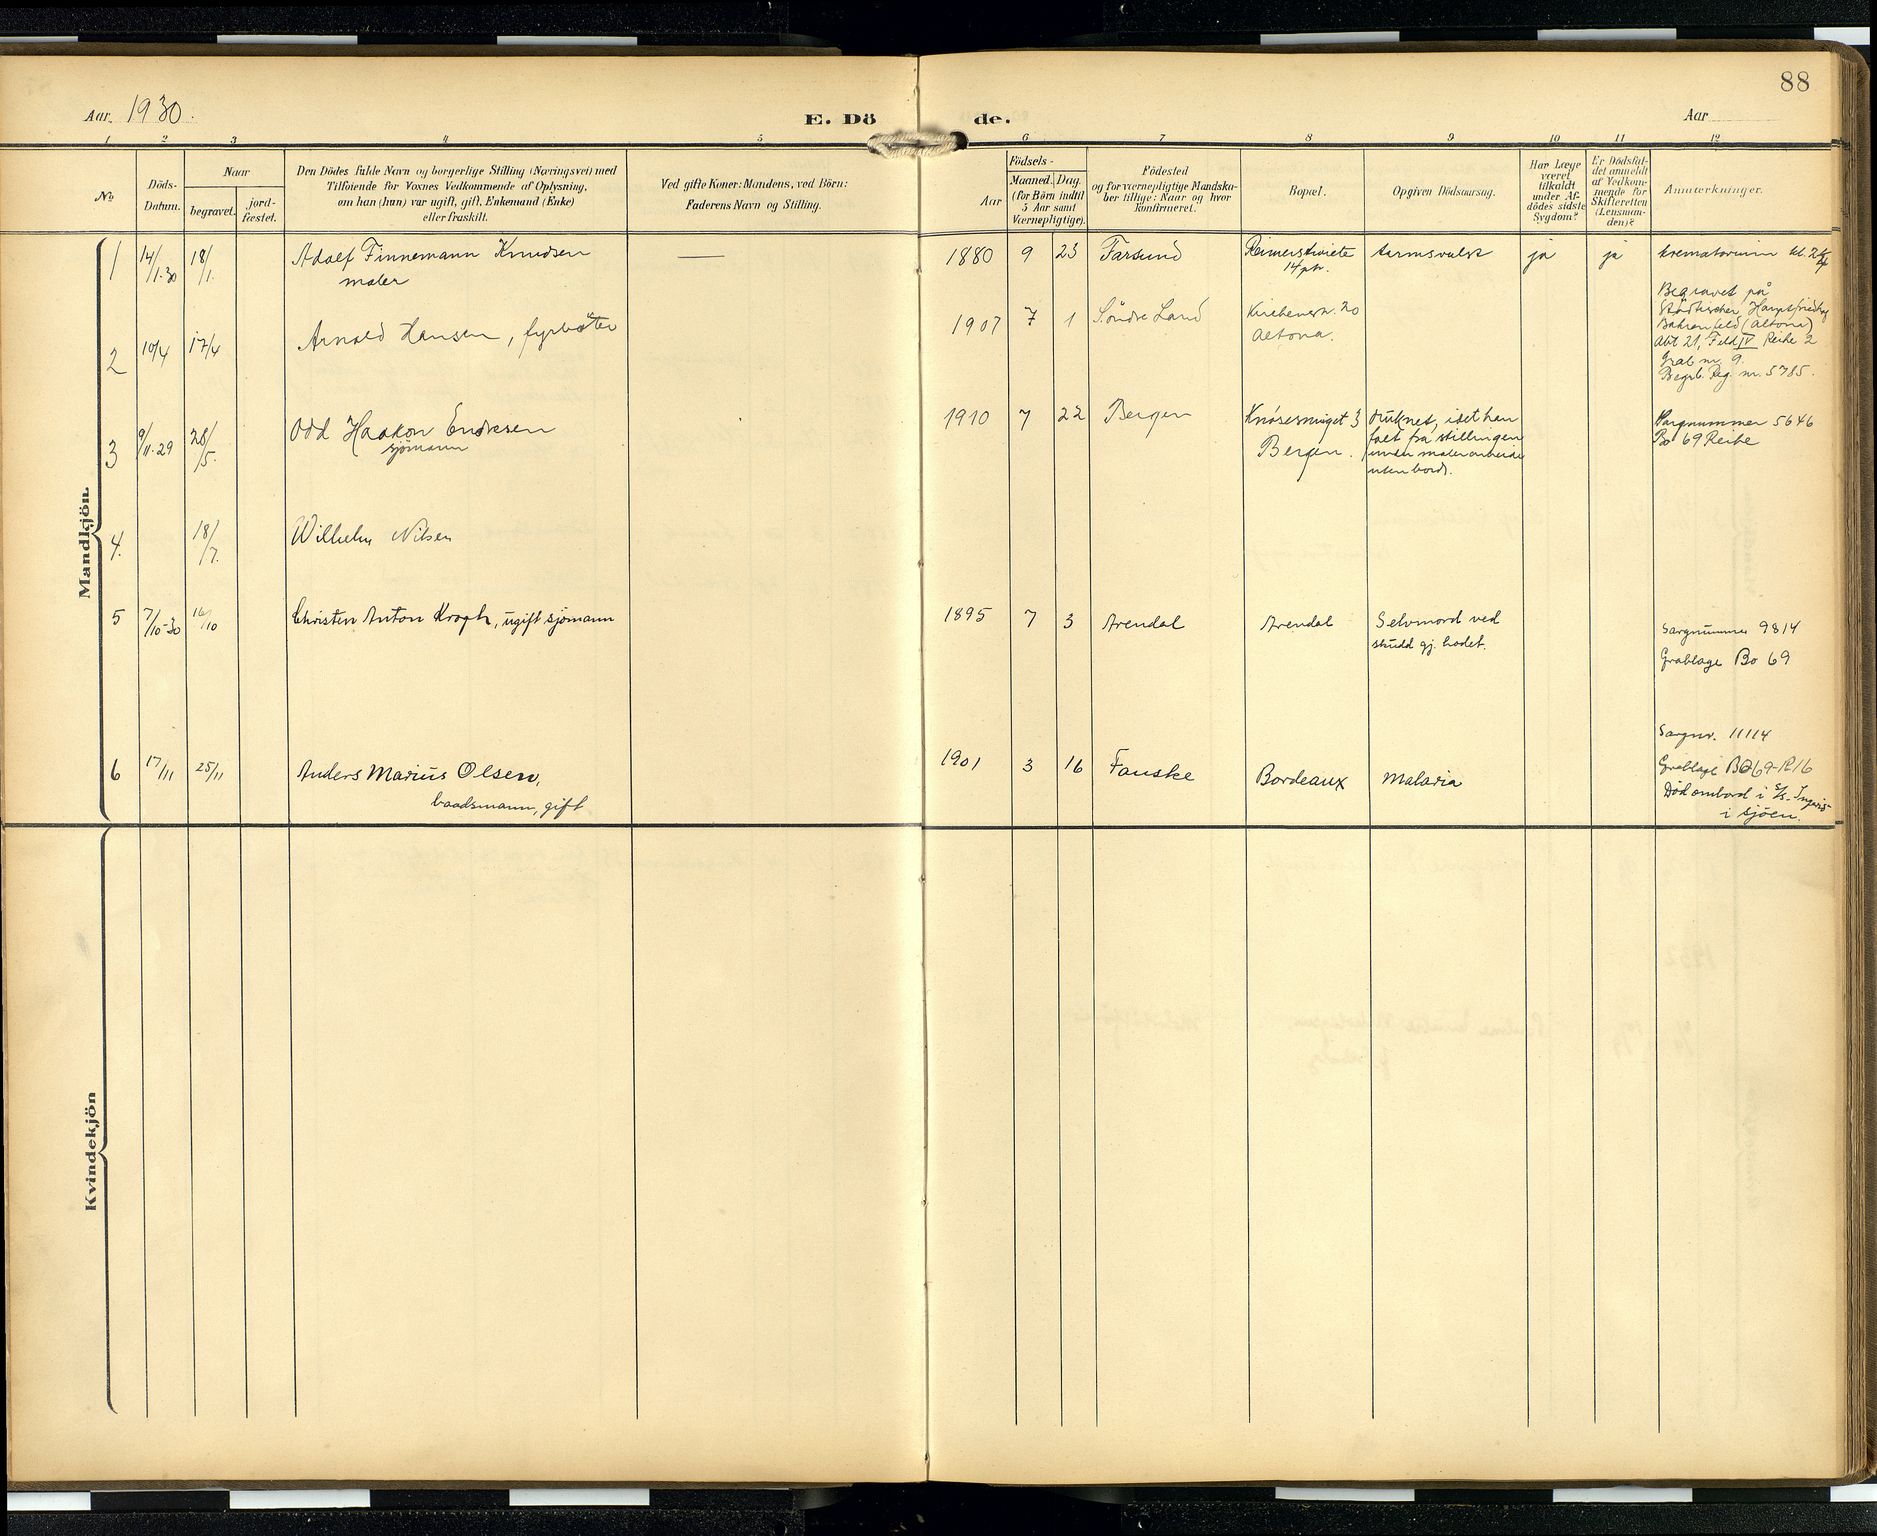 88
Aar 1930.
E. Döde.
Aar
1 2 3 4 5 6 7 8 9 10 11 12
No.
Döds-Datum.
Naar
begravet.
jord-fæstet.
Den Dödes fulde Navn og borgerlige Stilling (Næringsvei) med
Tilföiende for Voxnes Vedkommende af Oplysning,
om han (hun) var ugift, gift, Enkemand (Enke)
eller fraskilt.
Ved gifte Koner: Mandens, ved Börn:
Faderens Navn og Stilling.
Födsels-
Aar
Maaned. Dag.
(for Börn indtil
5 Aar samt
Værnepligtige).
Födested
og for værnepligtige Mandska-
ber tillige: Naar og hvor
konfirmeret.
Bopæl.
Opgiven Dödsaarsag.
Har Læge
været
tilkaldt
under Af-
dödes sidste
Sygdom?
Er Dödsfal-
det anmeldt
af Vedkom-
mende for
Skifteretten
(Lensman-
den)?
Anmærkninger.
Mandkjön.
1 14/1-30 18/1. Adolf Finnemann Knudsen — 1880 9 23 Farsund Reimerstwiete ja ja krematorium kl.
maler 14 ptr.
2 10/4 17/4 Arnold Hansen, fyrböter 1907 7 1 Söndre Land Kirchenstr. 20
Altona.
Begravet på
Städtischer
Bahrenfeld (Altona)
Abt 21, Feld IV Reihe 2
Grab nr 9.
Begrb. Reg. nr. 5785.
3 9/11-29 28/5. Odd Haakon Endresen 1910 7 22 Bergen Knösesmuget 3 druknet, idet han
sjömann Bergen.
falt fra stillingen
under malerarbeide
utenbords.
Sargnummer 5646
Bo 69 Reihe
4. 18/7. Wilhelm Nilsen
5 7/10-30 16/10 Christen Anton Krogh, ugift sjömann 1895 7 3 Arendal Arendal Selvmord ved
skudd gj. hodet.
Sargnummer 9814
Grablage Bo 69
6 17/11 25/11 Anders Marius Olsen, 1901 3 16 Fauske Bordeaux Malaria
baadsmann, gift
Sargnr. 11114
Grablage Bo 69-R16
Död ombord i S/S.
i sjöen.
Kvindekjön